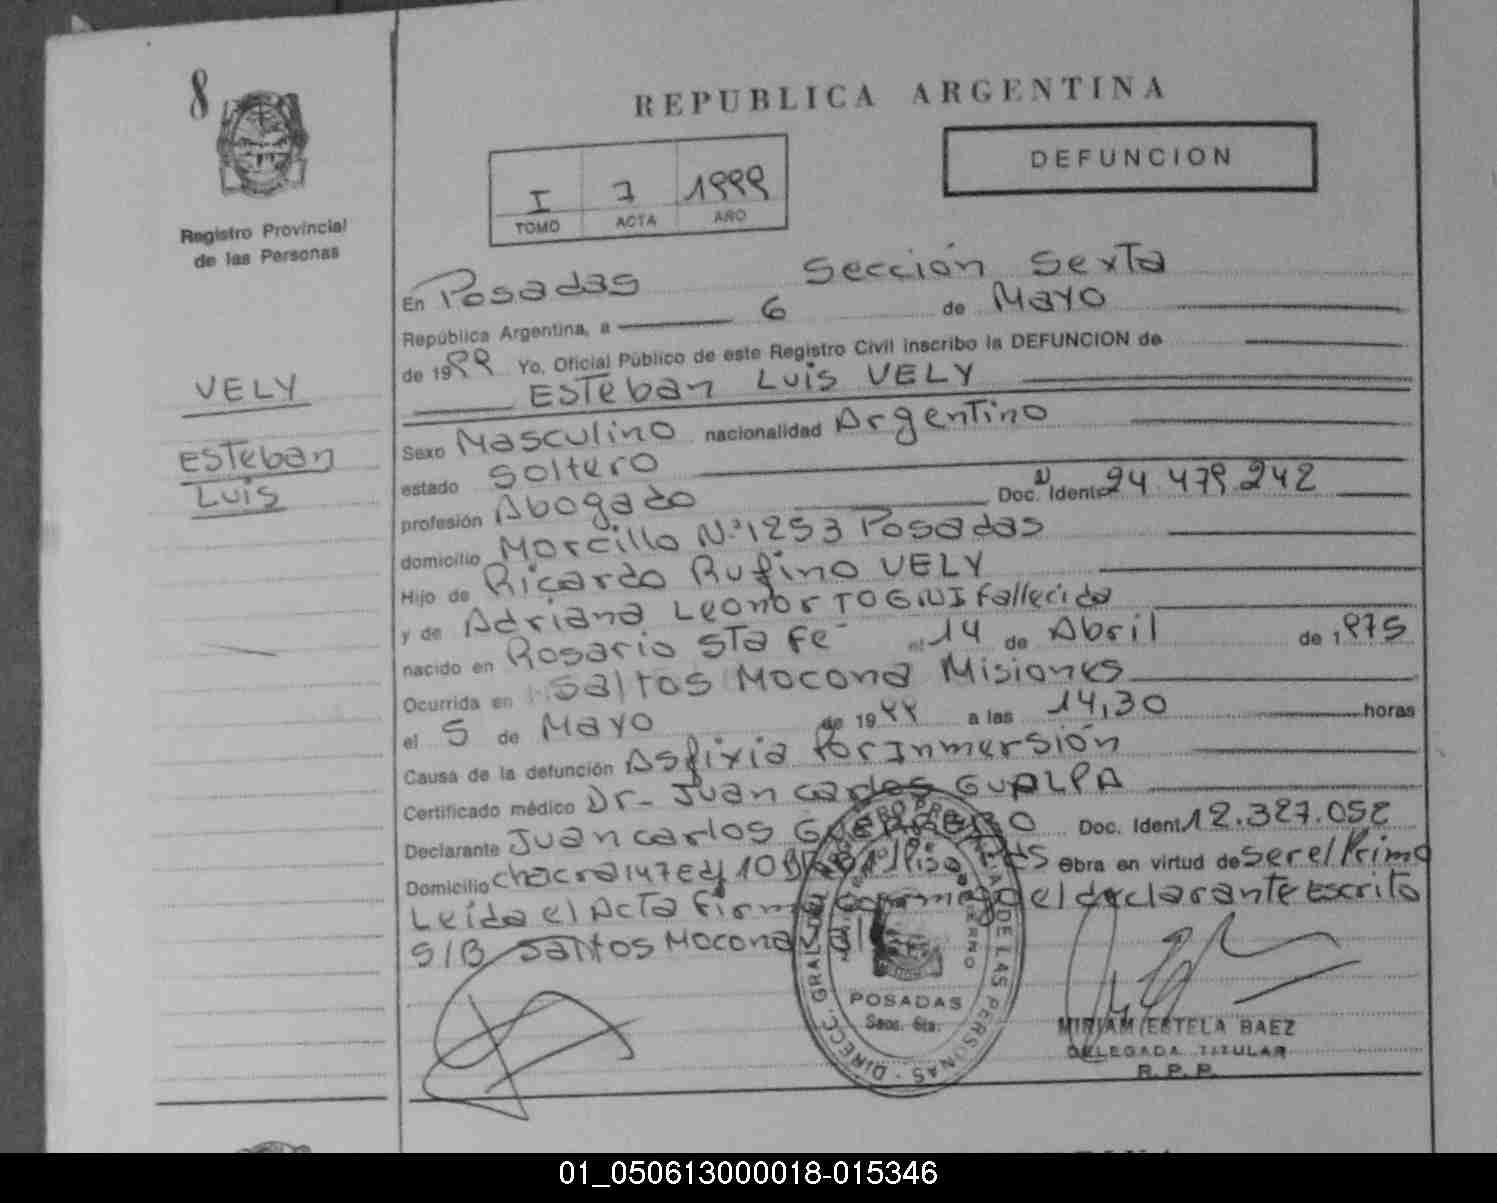 8
REPUBLICA ARGENTINA
DEFUNCION
I 7 1999
TOMO ACTA AÑO
Registro Provincial
de las Personas
VELY
Esteban
Luis
En Posadas Sección Sexta
República Argentina, a 6 de Mayo
de 1999 Yo, Oficial Público de este Registro Civil inscribo la DEFUNCION de
Esteban Luis VELY
Sexo Masculino nacionalidad Argentino
estado Soltero
profesión Abogado Doc. Ident. 24.479.242
domicilio Morcillo Nº 1253 Posadas
Hijo de Ricardo Rufino VELY
y de Adriana Leonor TOGNI fallecida
nacido en Rosario Sta Fe el 14 de Abril de 1975
Ocurrida en Saltos Mocona Misiones
el 5 de Mayo de 1999 a las 14,30 horas
Causa de la defunción Asfixia Por Inmersión
Certificado médico Dr- Juan Carlos GUALPA
Declarante Juan Carlos GUERRERO Doc. Ident. 12.327.052
Domicilio chacra 147 Edf 10 1º Piso Pdas obra en virtud de ser el Primo
Leída el Acta Firma conmigo el declarante Escrito
S/B Saltos Mocona
DIRECC. GRAL. DEL REGISTRO PROVINCIAL DE LAS PERSONAS
POSADAS
Secc. 6ta.
MIRIAM ESTELA BAEZ
DELEGADA TITULAR
R. P. P.
01_050613000018-015346